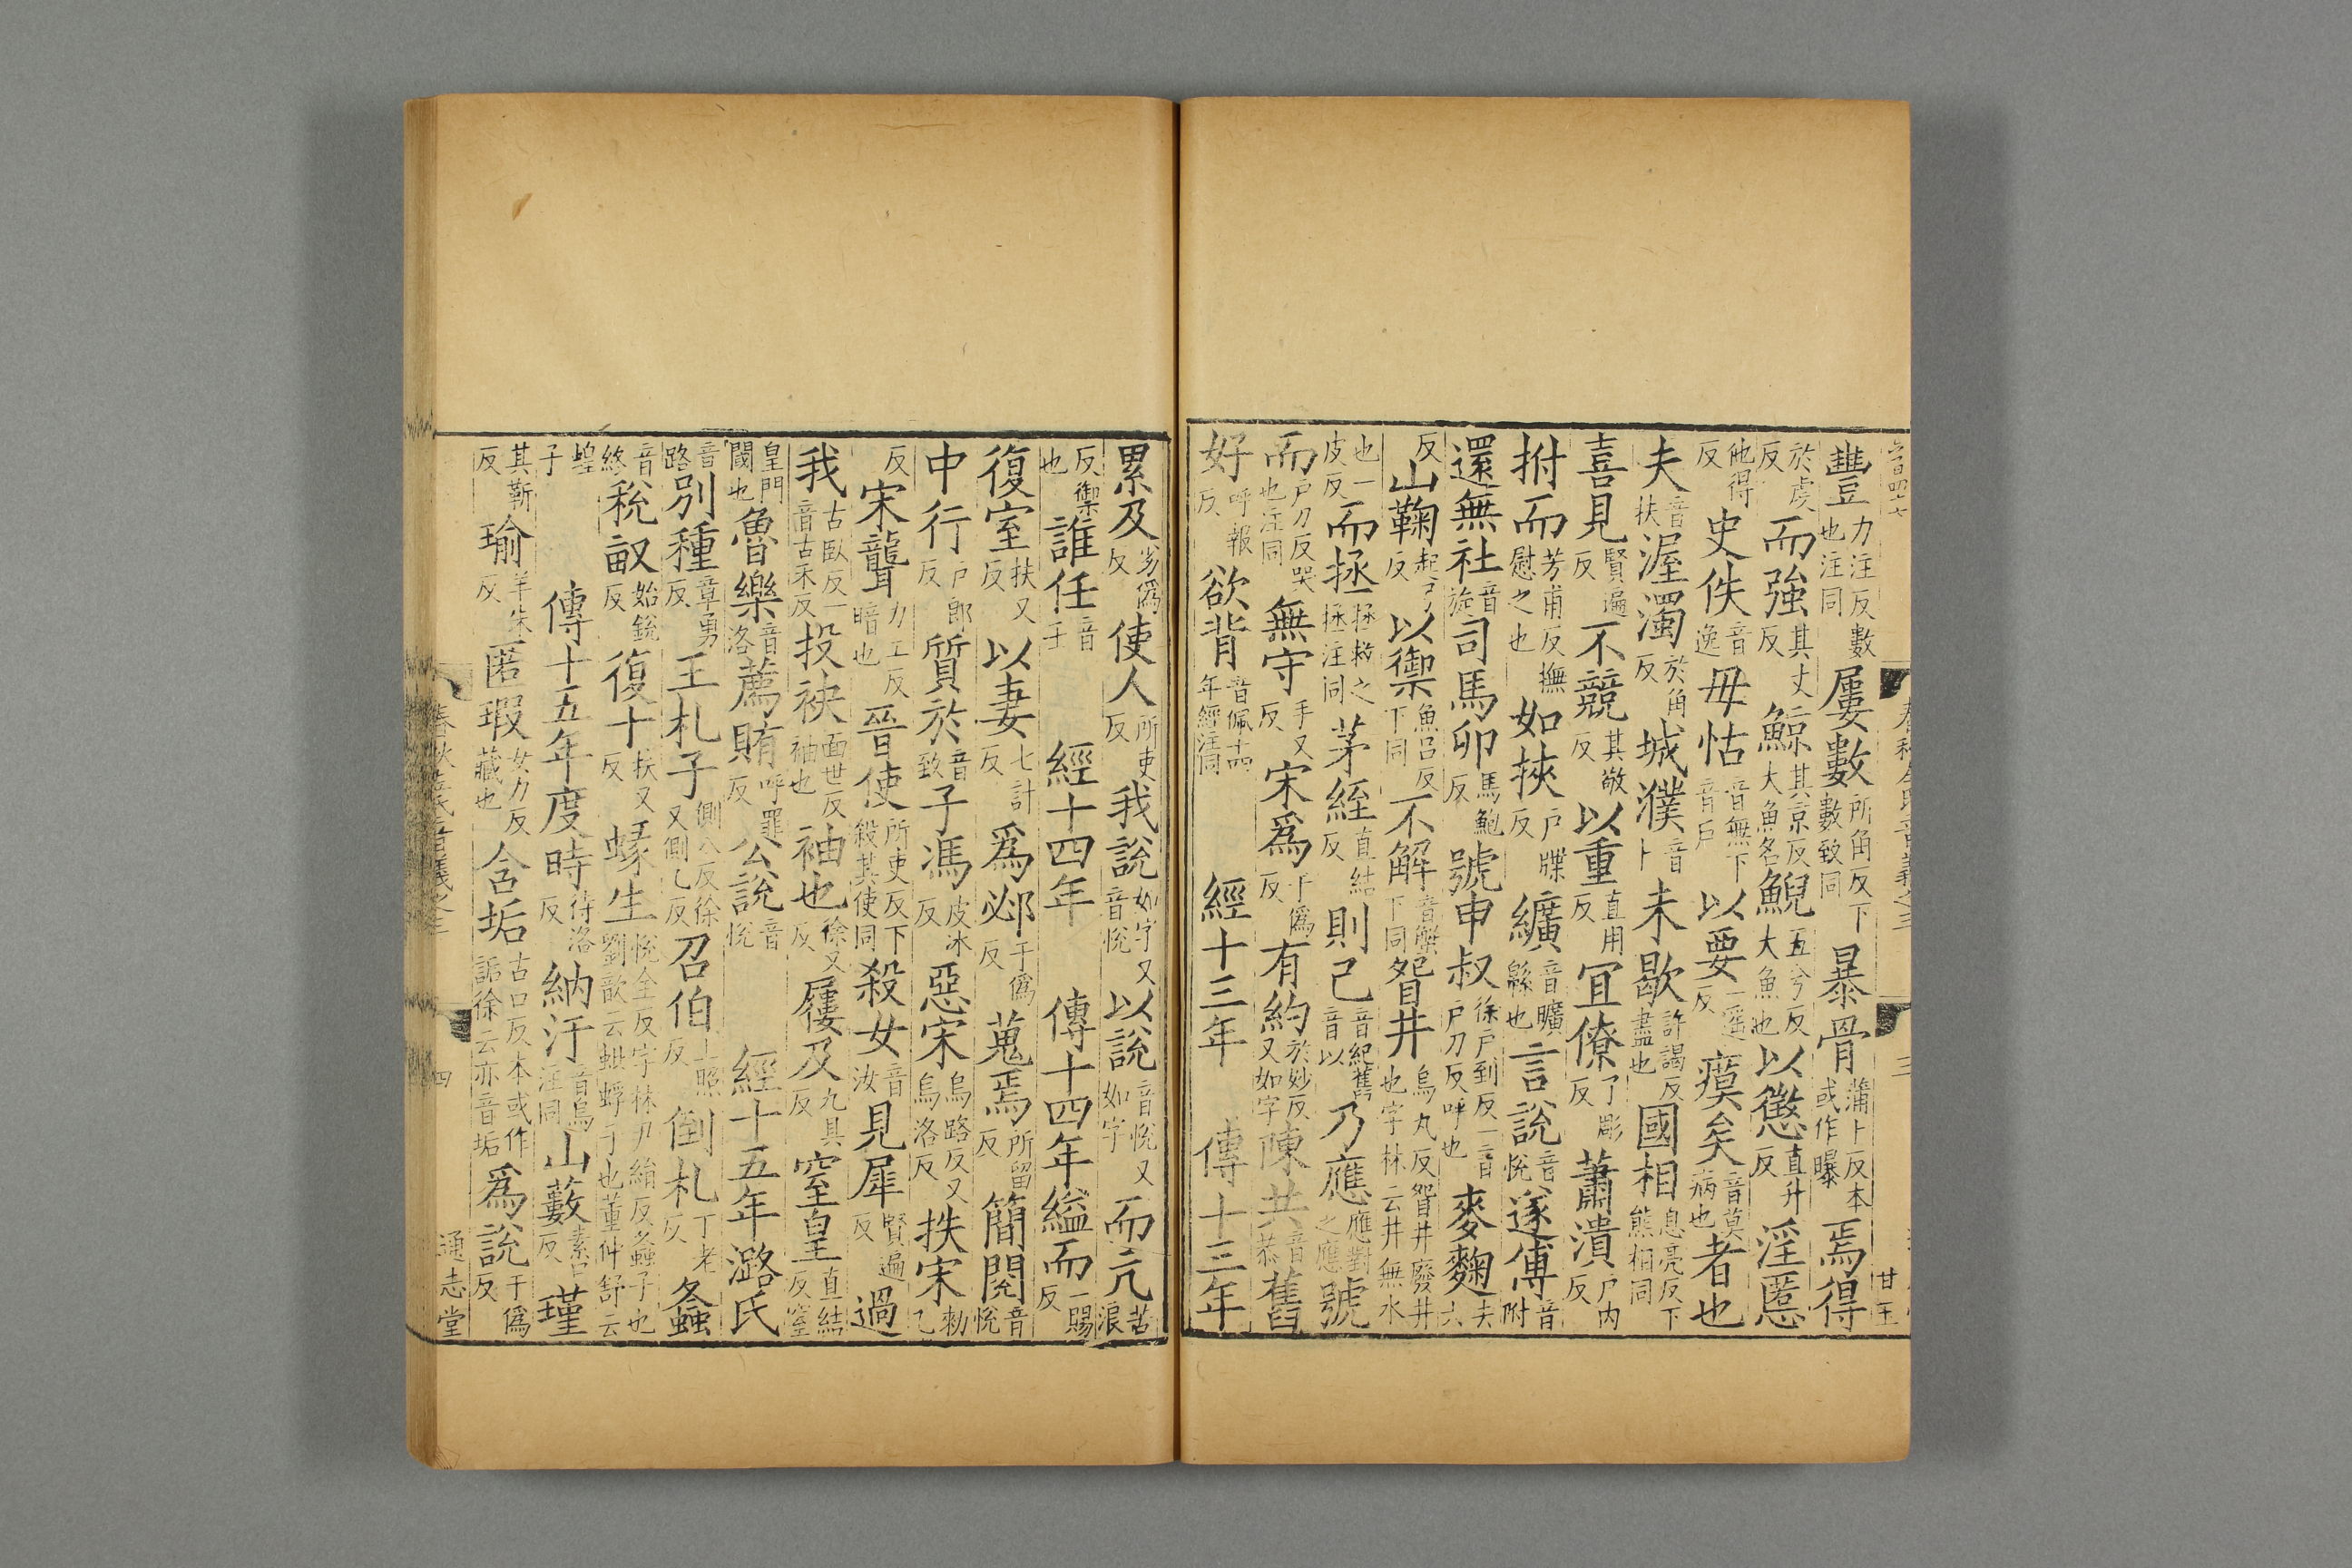 豐力注反數也注同屢數所角反下數致同暴骨蒲卜反本或作曝焉得
於虔反而強其丈反鯨其京反大魚名鯢五兮反大魚也以懲直升反淫慝
他得反史佚音逸毋怙音無下音戶以要一遥反瘼矣音莫病也者也
夫音扶渥濁於角反城濮音卜未歇許謁反盡也國相息亮反下熊相同
喜見賢遍反不競其敬反以重直用反宜僚了彫反蕭潰户内反
拊而芳甫反撫慰之也如挾户牒反纊音曠緜也言說音悅遂傅音附
還無社音旋司馬卯馬鮑反號申叔徐户到反一音户刀反呼也麥麴去六
反山鞠起弓反以禦魚呂反下同不解音蟹下同眢井烏丸反眢井廢井也字林云井無水
也一皮反而拯拯救之拯注同茅絰直結反則己音紀舊音以乃應應對之應號
而户刀反哭也注同無守手又反宋爲于僞反有約於妙反又如字陳共音恭舊
好呼報反欲背音佩十四年經注同經十三年傳十三年
累及劣僞反使人所吏反我說如字又音悅以說音悅又如字而亢苦浪
反禦也誰任音壬經十四年傳十四年縊而一賜反
復室扶又反以妻七計反爲邲于僞反蒐焉所留反簡閱音悅
中行户郎反質於音致子馮皮冰反惡宋烏路反又烏洛反抶宋勑乙
反宋聾力工反暗也晉使所吏反下殺其使同殺女音汝見犀賢遍反過
我古臥反一音古禾反投袂面世反袖也袖也徐又反屨及九具反窒皇直結反窒
皇門闕也魯樂音洛薦賄呼罪反公說音悅經十五年潞氏
音路別種章勇反王札子側八反徐又側乙反召伯上照反倒札丁老反螽
音終稅畝始銳反復十扶又反蝝生悅全反字林尹絹反螽子也劉歆云蚍蜉子也董仲舒云
蝗子傳十五年度時待洛反納汙音烏注同山藪素口反瑾
其靳反瑜羊朱反匿瑕女力反藏也含垢古口反本或作詬徐云亦音垢爲說于僞反
四
通志堂